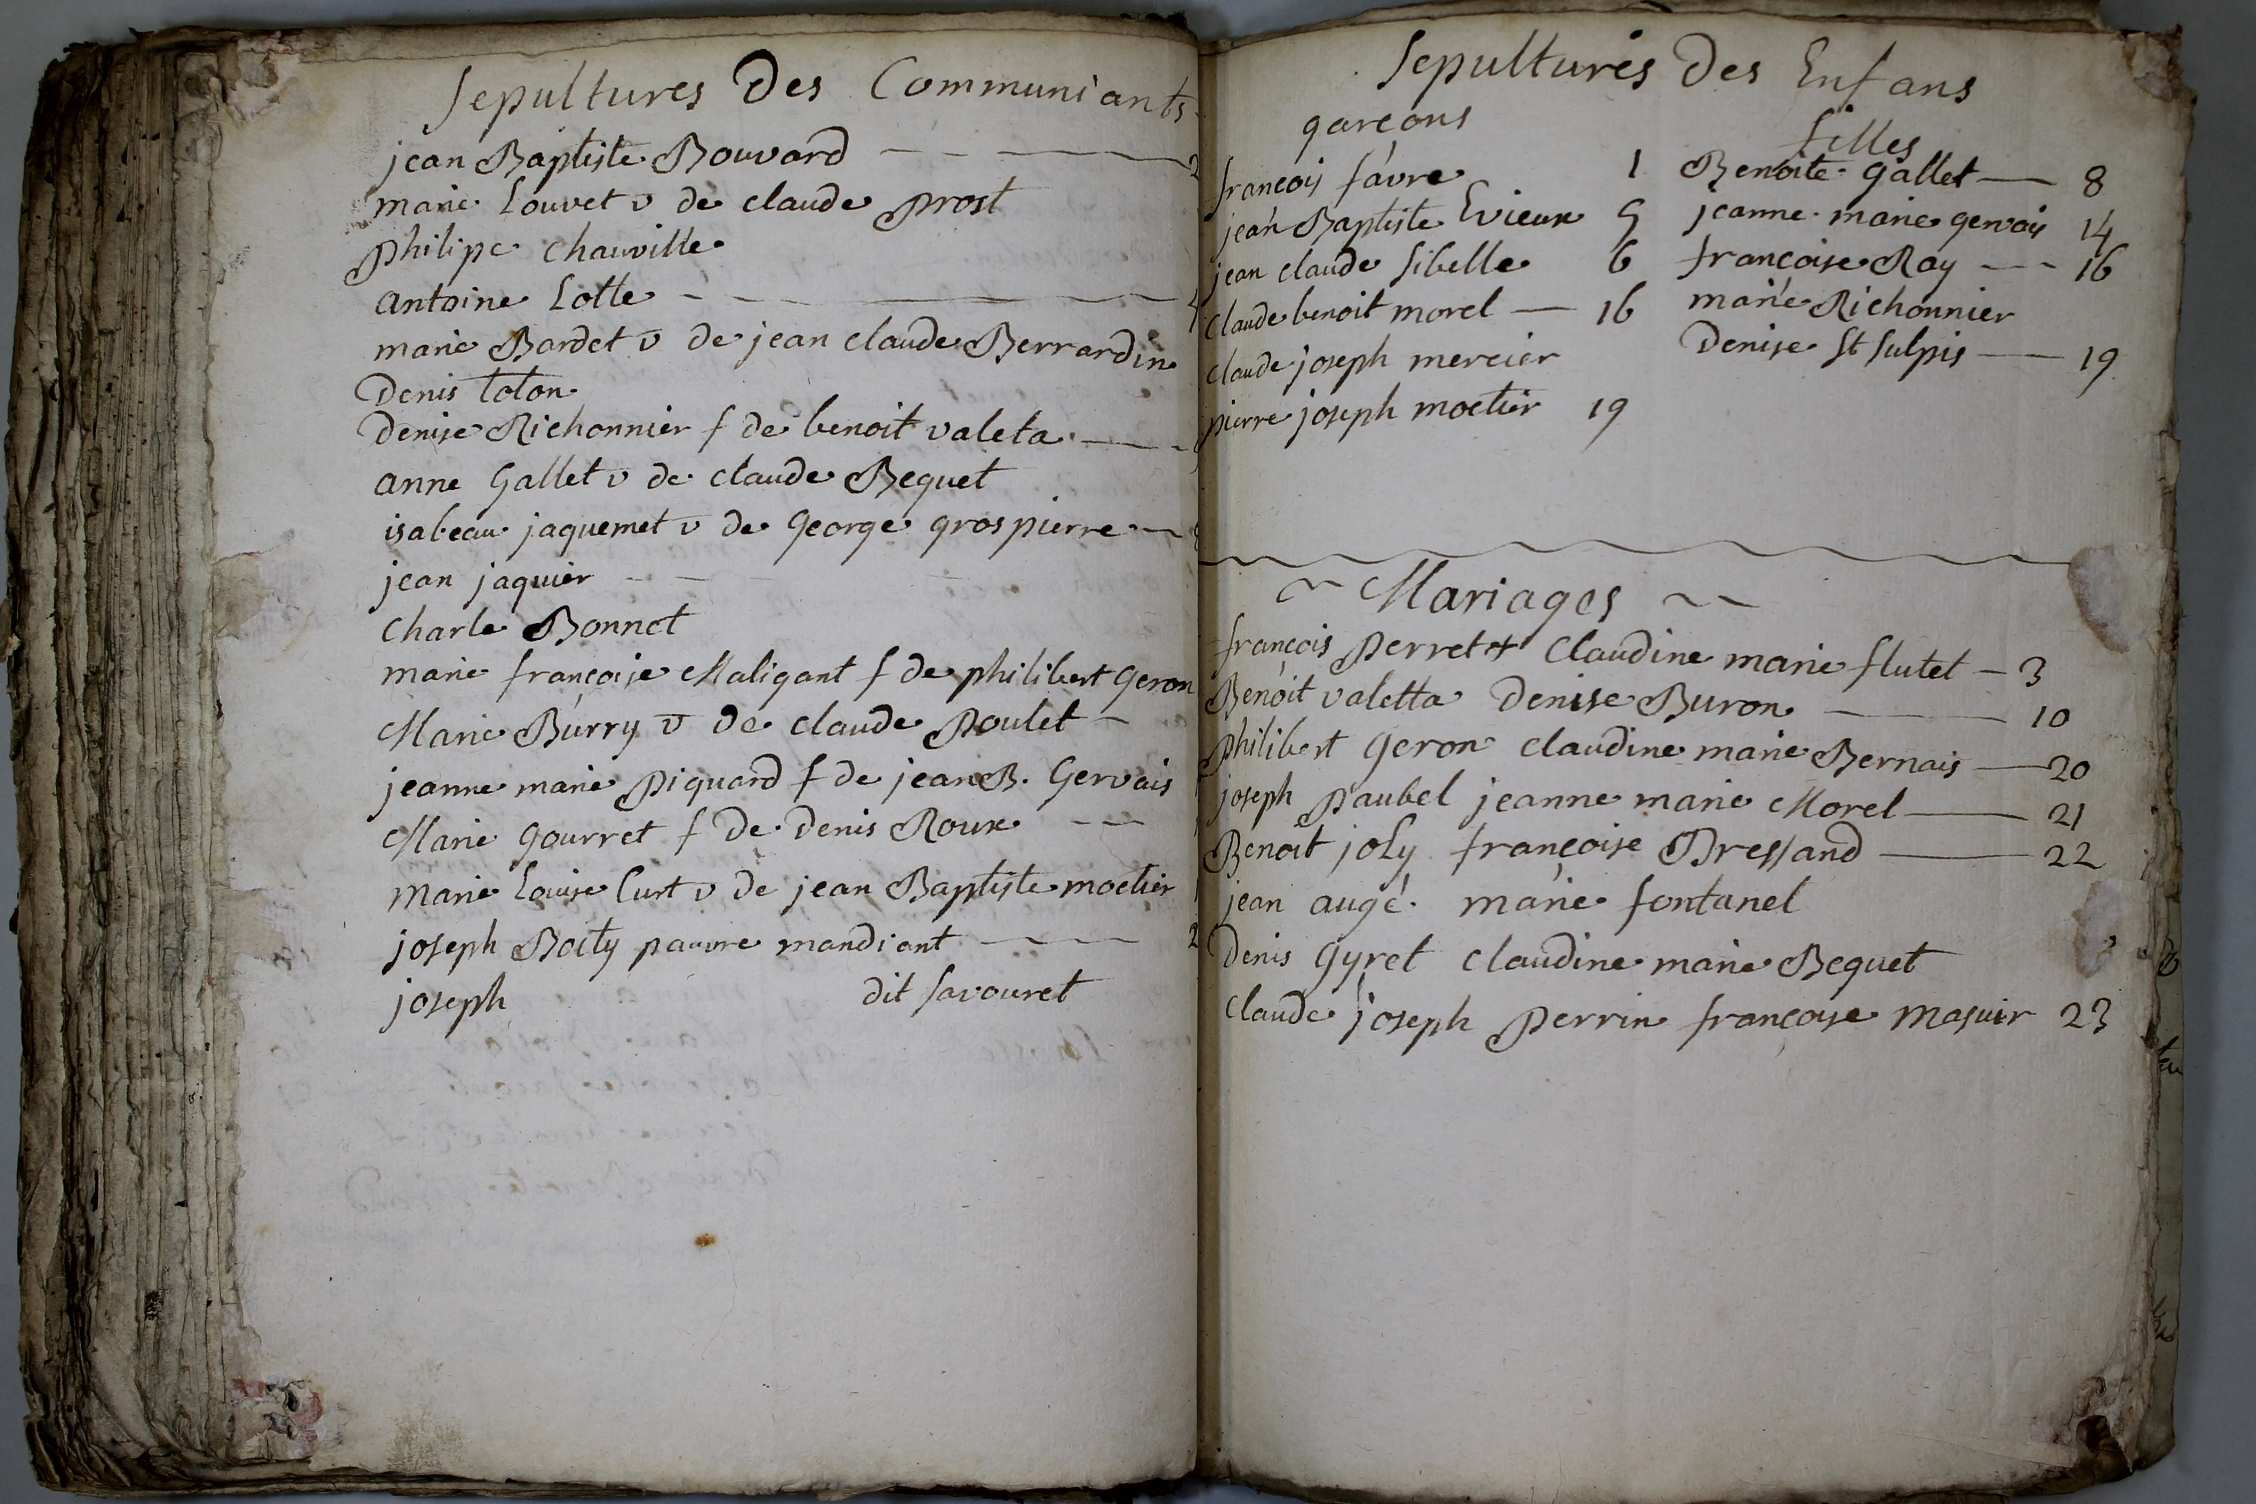 Sepultures Des Communiants
jean Baptiste Bouvard 2
marie Louvet v de claude prost
philipe chauville
antoine Lotte
marie Bardet v de jean claude Berrardin
Denis toton
Denise Richonnier f de benoit valeta
anne Gallet v de claude Bequet
isabeau jaquemet v de George grospierre
jean jaquier
Charle Bonnet
marie françoise Maligant f de philibert Geron
Marie Burry v de claude Poulet
jeanne marie Piquard f de jean B. Gervais
Marie Gourret f de Denis Roux
Marie Louise Curt v de jean Baptiste moetier
joseph Boity pauvre mandiant 2
joseph dit savouret
Sepultures Des Enfans
garçons
filles
françois favre 1
jean Baptiste Evieux 5
jean claude sibelle 6
claude benoit morel 16
claude joseph mercier
pierre joseph moetier 19
Benoite Gallet 8
jeanne marie gervais 14
françoise Ray 16
marie Richonnier
Denise St sulpis 19
Mariages
françois Perret et Claudine marie flutet 3
Benoit valetta Denise Buron 10
Philibert Geron claudine marie Bernais 20
joseph Paubel jeanne marie Morel 21
Benoit joly françoise Bressand 22
jean augé marie fontanel
Denis Gyret claudine marie Bequet
claude joseph Perrin françoise masuir 23